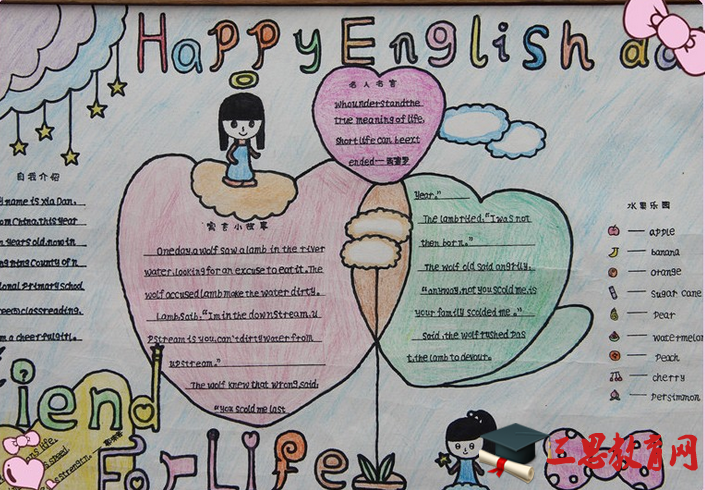 Happy English
自我介绍
name is Xia Dan.
China. this year
years old. now in
County of
Primary school
reading.
a cheerful girl.
名人名言
who understand the
true meaning of life,
short life can be ext
ended—
寓言小故事
One day, a wolf saw a lamb in the river
water. looking for an excuse to eat it. The
wolf accused lamb make the water dirty.
Lamb saib: "Im in the down stream, u
pstream is you, can't dirty water from
upstream."
The wolf knew that wrong, said:
"you scold me last
year."
The lamb tried, "I was not
then born."
The wolf old said angrily,
"anyway, not you scold me, is
your family scolded me."
Said, the wolf rushed pas
t, the lamb to devour.
水果乐园
apple
banana
orange
sugar cane
pear
watermelon
peach
cherry
persimmon
Friend
For Life
strength.
三思教育网